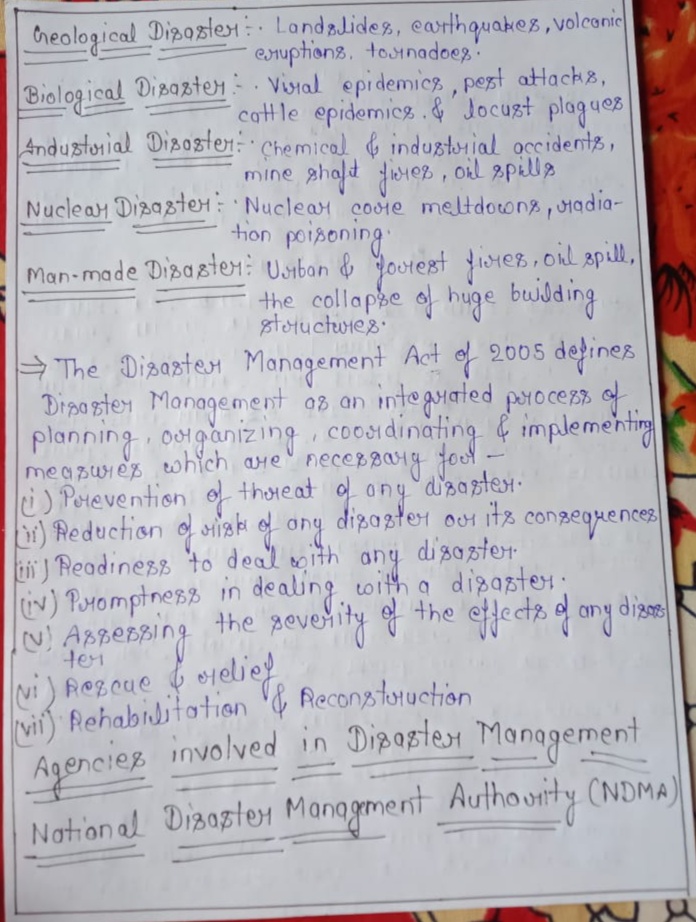 Geological Disaster:- Landslides, earthquakes, volcanic
eruptions, tornadoes.
Biological Disaster:- Viral epidemics, pest attacks,
cattle epidemics. & locust plagues
Industorial Disaster:- Chemical & industorial accidents,
mine shaft fires, oil spills
Nuclear Disaster:- Nuclear core meltdowns, radia-
tion poisoning.
Man-made Disaster: Urban & forest fires, oil spill,
the collapse of huge building
structures.
⇒ The Disaster Management Act of 2005 defines
Disaster Management as an integrated process of
planning, organizing, coordinating & implementing
measures which are necessary for -
(i) Prevention of threat of any disaster.
(ii) Reduction of risk of any disaster or its consequences
(iii) Readiness to deal with any disaster.
(iv) Promptness in dealing with a disaster.
(v) Assessing the severity of the effects of any disas
ter
(vi) Rescue & relief
(vii) Rehabilitation & Reconstruction
Agencies involved in Disaster Management
National Disaster Management Authority (NDMA)